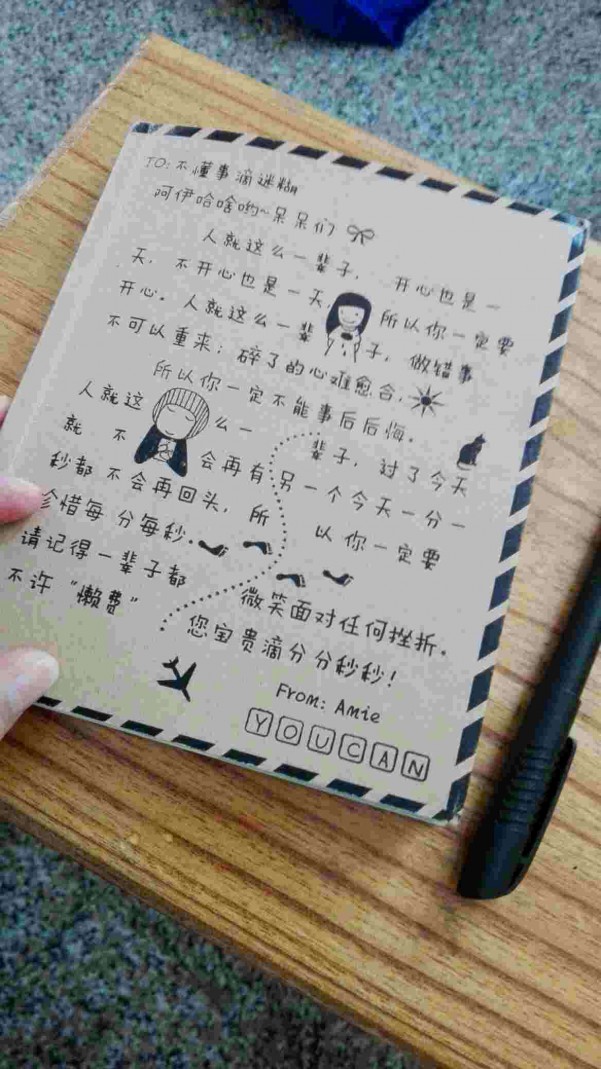 TO: 不懂事滴迷糊
阿伊哈啥哟~呆呆们
人就这么一辈子, 开心也是一
天, 不开心也是一天, 所以你一定要
开心。人就这么一辈子, 做错事
不可以重来; 碎了的心难愈合,
所以你一定不能事后后悔。
人就这么一辈子, 过了今天
就不会再有另一个今天一分一
秒都不会再回头, 所以你一定要
珍惜每分每秒.
请记得一辈子都微笑面对任何挫折。
不许“懒费”您宝贵滴分分秒秒!
From: Amie
YOUCAN